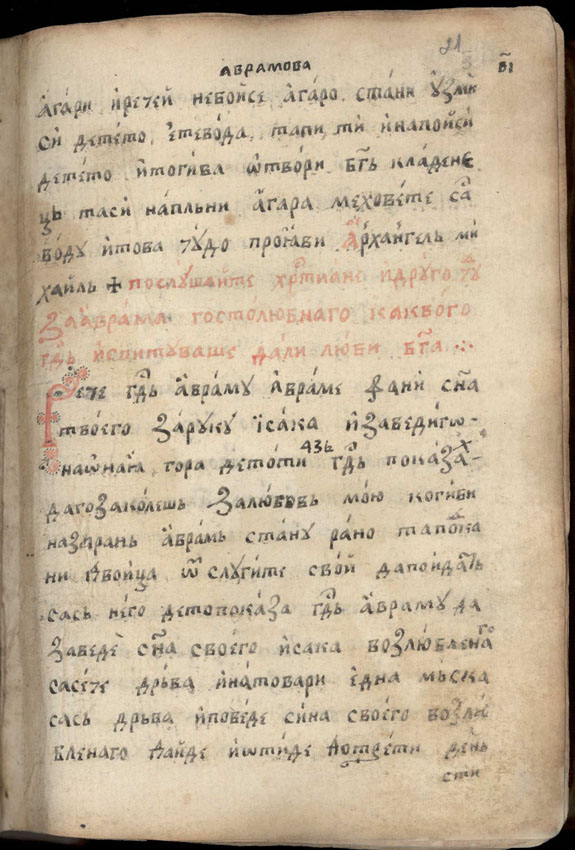 АВРАМОВА
21
в҃і
а҆гари и҆рече́й небо́йсе а҆га́ро. ста́ни
си дете́то. тапи ти инапо́йси
дете́то и҆тоги́ва ѿтвори бг҃ъ кла́дене
ць таси́ напльни а҆гара мехове́те са
во́ду и҆това чу́до проꙗ҆ви а҆рха́нгель ми
хаиль + послꙋ́шайте хр҃тиане идрꙋ́го
заа҆врама гостолюбнаго каквого
гд҃ь испи́тꙋваше да́ли лю́би бг҃а
Рече гд҃ь а҆врамꙋ а҆враме фани сн҃а
твоего зарꙋкꙋ ісака и҆заведиго
гора дето́ти а҆зь гд҃ь пока́за
даго̀зако́лешь залюбовь мою̀ коги́би
назарань а҆врамь станꙋ ра́но тапока
ни двоица ѿ слꙋги́те свои дапоидать
сась не́го детопока́за гд҃ь а҆врамꙋ да
заведѐ сн҃а своего и҆сака возлюбленаго
сасече дрьва и҆натовари една мьска
сась дрьва и҆пове́де си́на своего возлю
бленаго Да́йде и҆ѿти́де дотрети день
сти